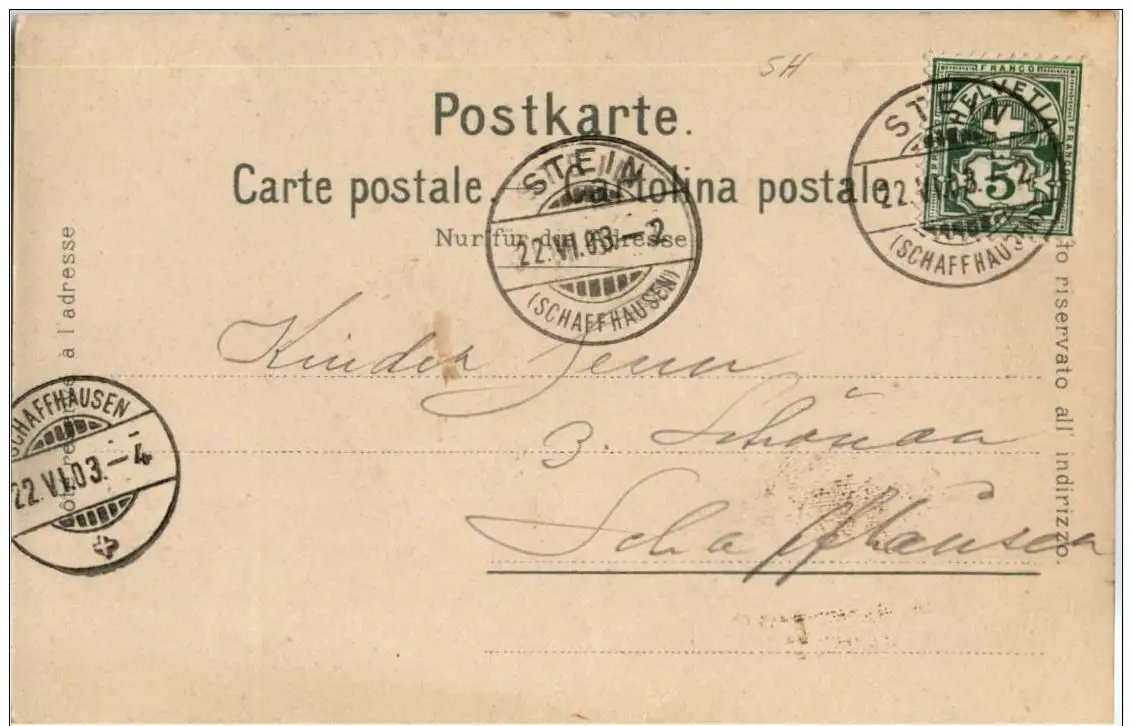 SH
Postkarte.
Carte postale. Cartolina postale.
Nur für die Adresse
FRANCO
HELVETIA
FRANCO
5
STEIN
22.VI.03.–2
(SCHAFFHAUSEN)
STEIN
22.VI.03.–2
(SCHAFFHAUSEN)
à l'adresse
riservato all' indirizzo.
SCHAFFHAUSEN
22.VI.03.–4
Kinder Senn
z.
Schaffhausen